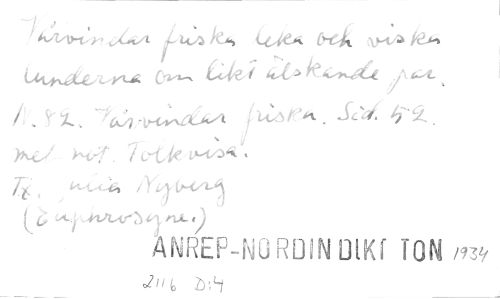 Vårvindar friska leka och viska
lunderna om likt älskande par.
N. 82. Vårvindar friska. Sid. 52.
med not. Folkvisa.
Tx. Julia Nyberg
(Euphrosyne.)
ANREP-NORDIN DIKT TON 1934
2116 D:4